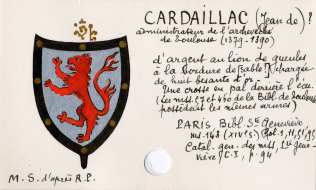 CARDAILLAC (Jean de) ?
administrateur de l'archevêché
de Toulouse (1379-1390)
d'argent au lion de gueules
à la bordure de sable chargée
de huit besants d'or.
Une crosse en pal derrière l'écu.
(Les mss. et 460 de la Bibl. de Toulouse
possèdent les mêmes armes)
PARIS Bibl. Ste Geneviève
ms. 148 (XIVe s) fol. 1,
Catal. gen. des mss. Ste Gene-
viève T. I, p. 94
M. S. d'après R. P.